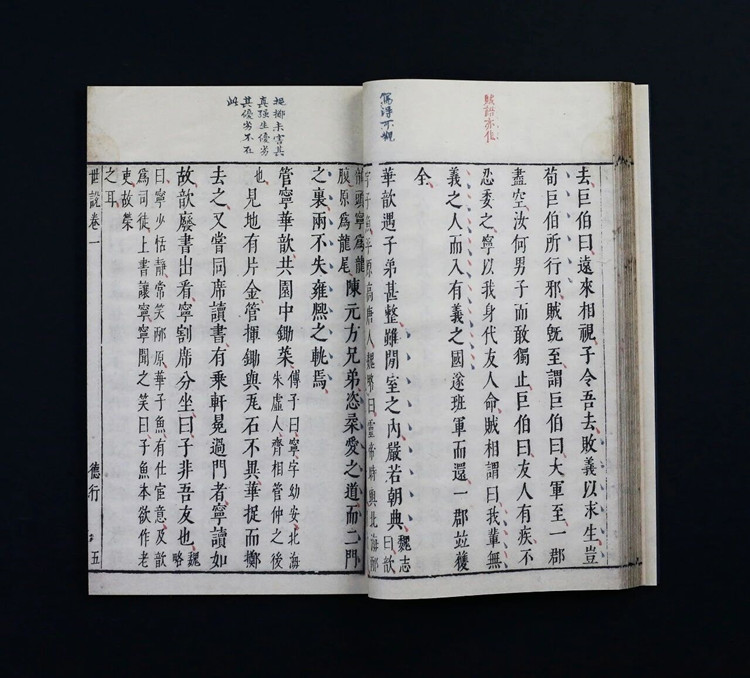 賊語亦佳
去巨伯曰遠來相視子令吾去敗義以求生豈
荀巨伯所行邪賊旣至謂巨伯曰大軍至一郡
盡空汝何男子而敢獨止巨伯曰友人有疾不
忍委之寧以我身代友人命賊相謂曰我輩無
義之人而入有義之國遂班軍而還一郡並獲
全
得可觀
華歆遇子弟甚整雖閒室之內嚴若朝典
魏志
曰歆
字子魚平原高唐人魏略曰靈帝時與北海邴
頭寧爲龍
腹原爲龍尾
陳元方兄弟恣柔愛之道而二門
之裏兩不失雍熙之軌焉
捉擲未害其
真強生優劣
其優劣不在
此
管寧華歆共園中鋤菜
傅子曰寧字幼安北海
朱虛人齊相管仲之後
也
見地有片金管揮鋤與瓦石不異華捉而擲
去之又嘗同席讀書有乘軒冕過門者寧讀如
故歆廢書出看寧割席分坐曰子非吾友也
魏
略
曰寧少恬靜常笑邴原華子魚有仕宦意及歆
爲司徒上書讓寧寧聞之笑曰子魚本欲作老
吏故榮
之耳
世說卷一
德行
五